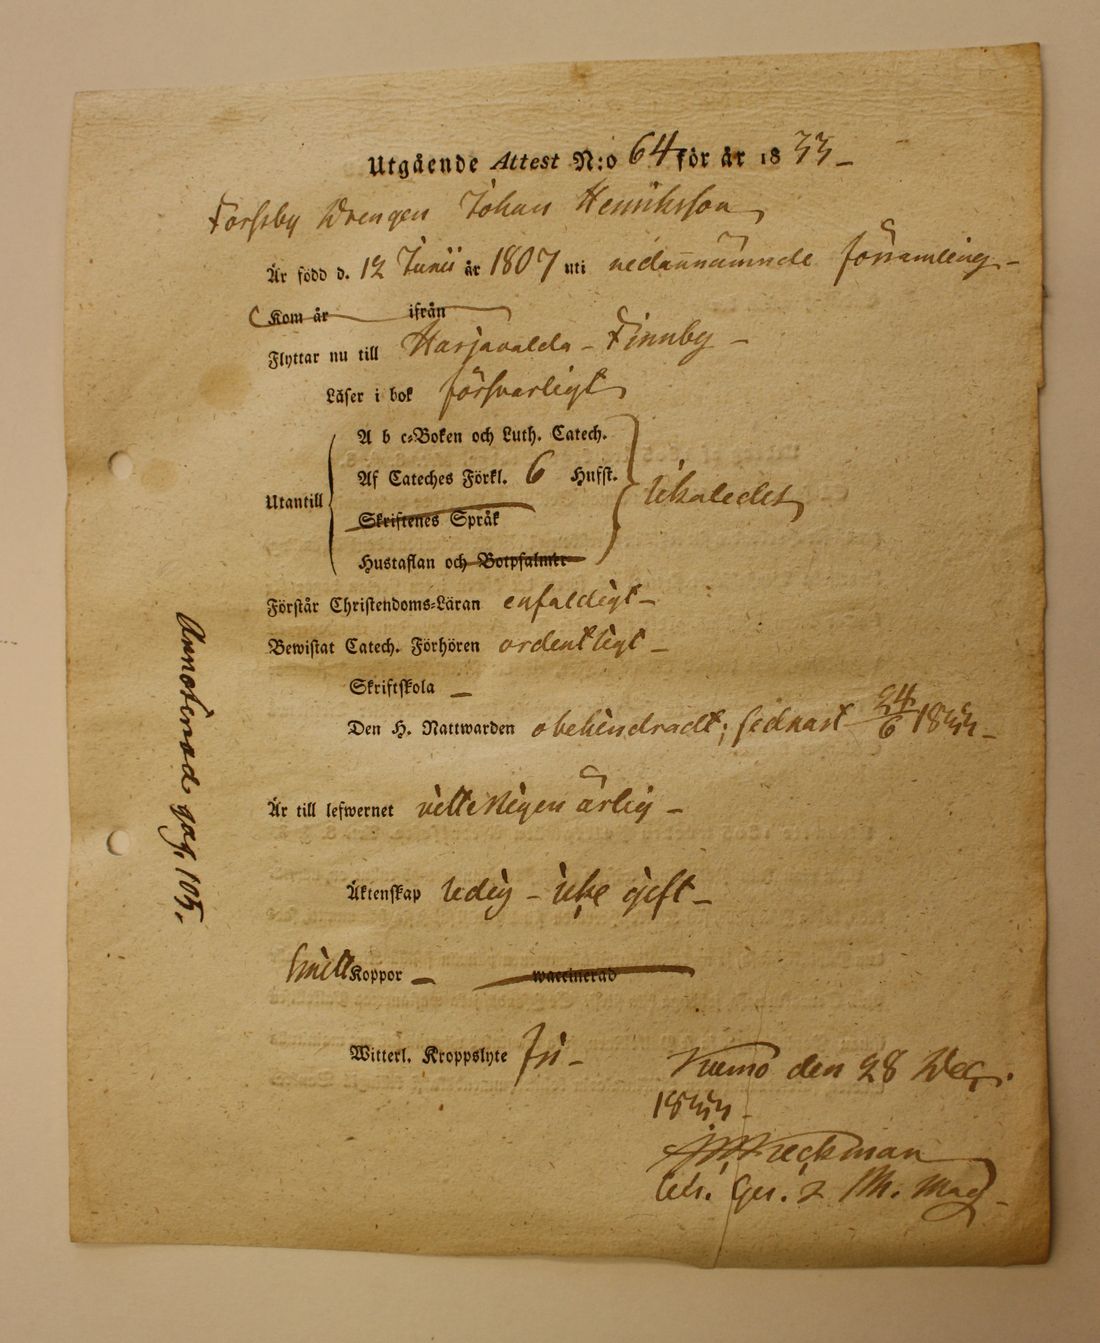 Utgående Attest N:o 64 för år 1833
Forssby Drengen Johan Henriksson
Är född d. 12 Junii år 1807 uti nedannämnde församling
Kom år ifrån
Flyttar nu till Harjavalda - Finnby
Läser i bok försvarligt
A b c-Boken och Luth. Catech.
Af Cateches Förkl. 6 Hufst.
Utantill
likaledes
Skriftenes Språk
Hustaflan och Botpsalmer
Förstår Christendoms-Läran enfaldigt
Bewistat Catech. Förhören ordentligt
Skriftskola
Den H. Nattwarden obehindradt; sednast 24/6 1833
Är till lefwernet ärlig
Äktenskap ledig - icke gift
haft Koppor waccinerad
Witterl. Kroppslyte fri
Kumo den 28 Dec.
1833
Annoterad pag. 105.